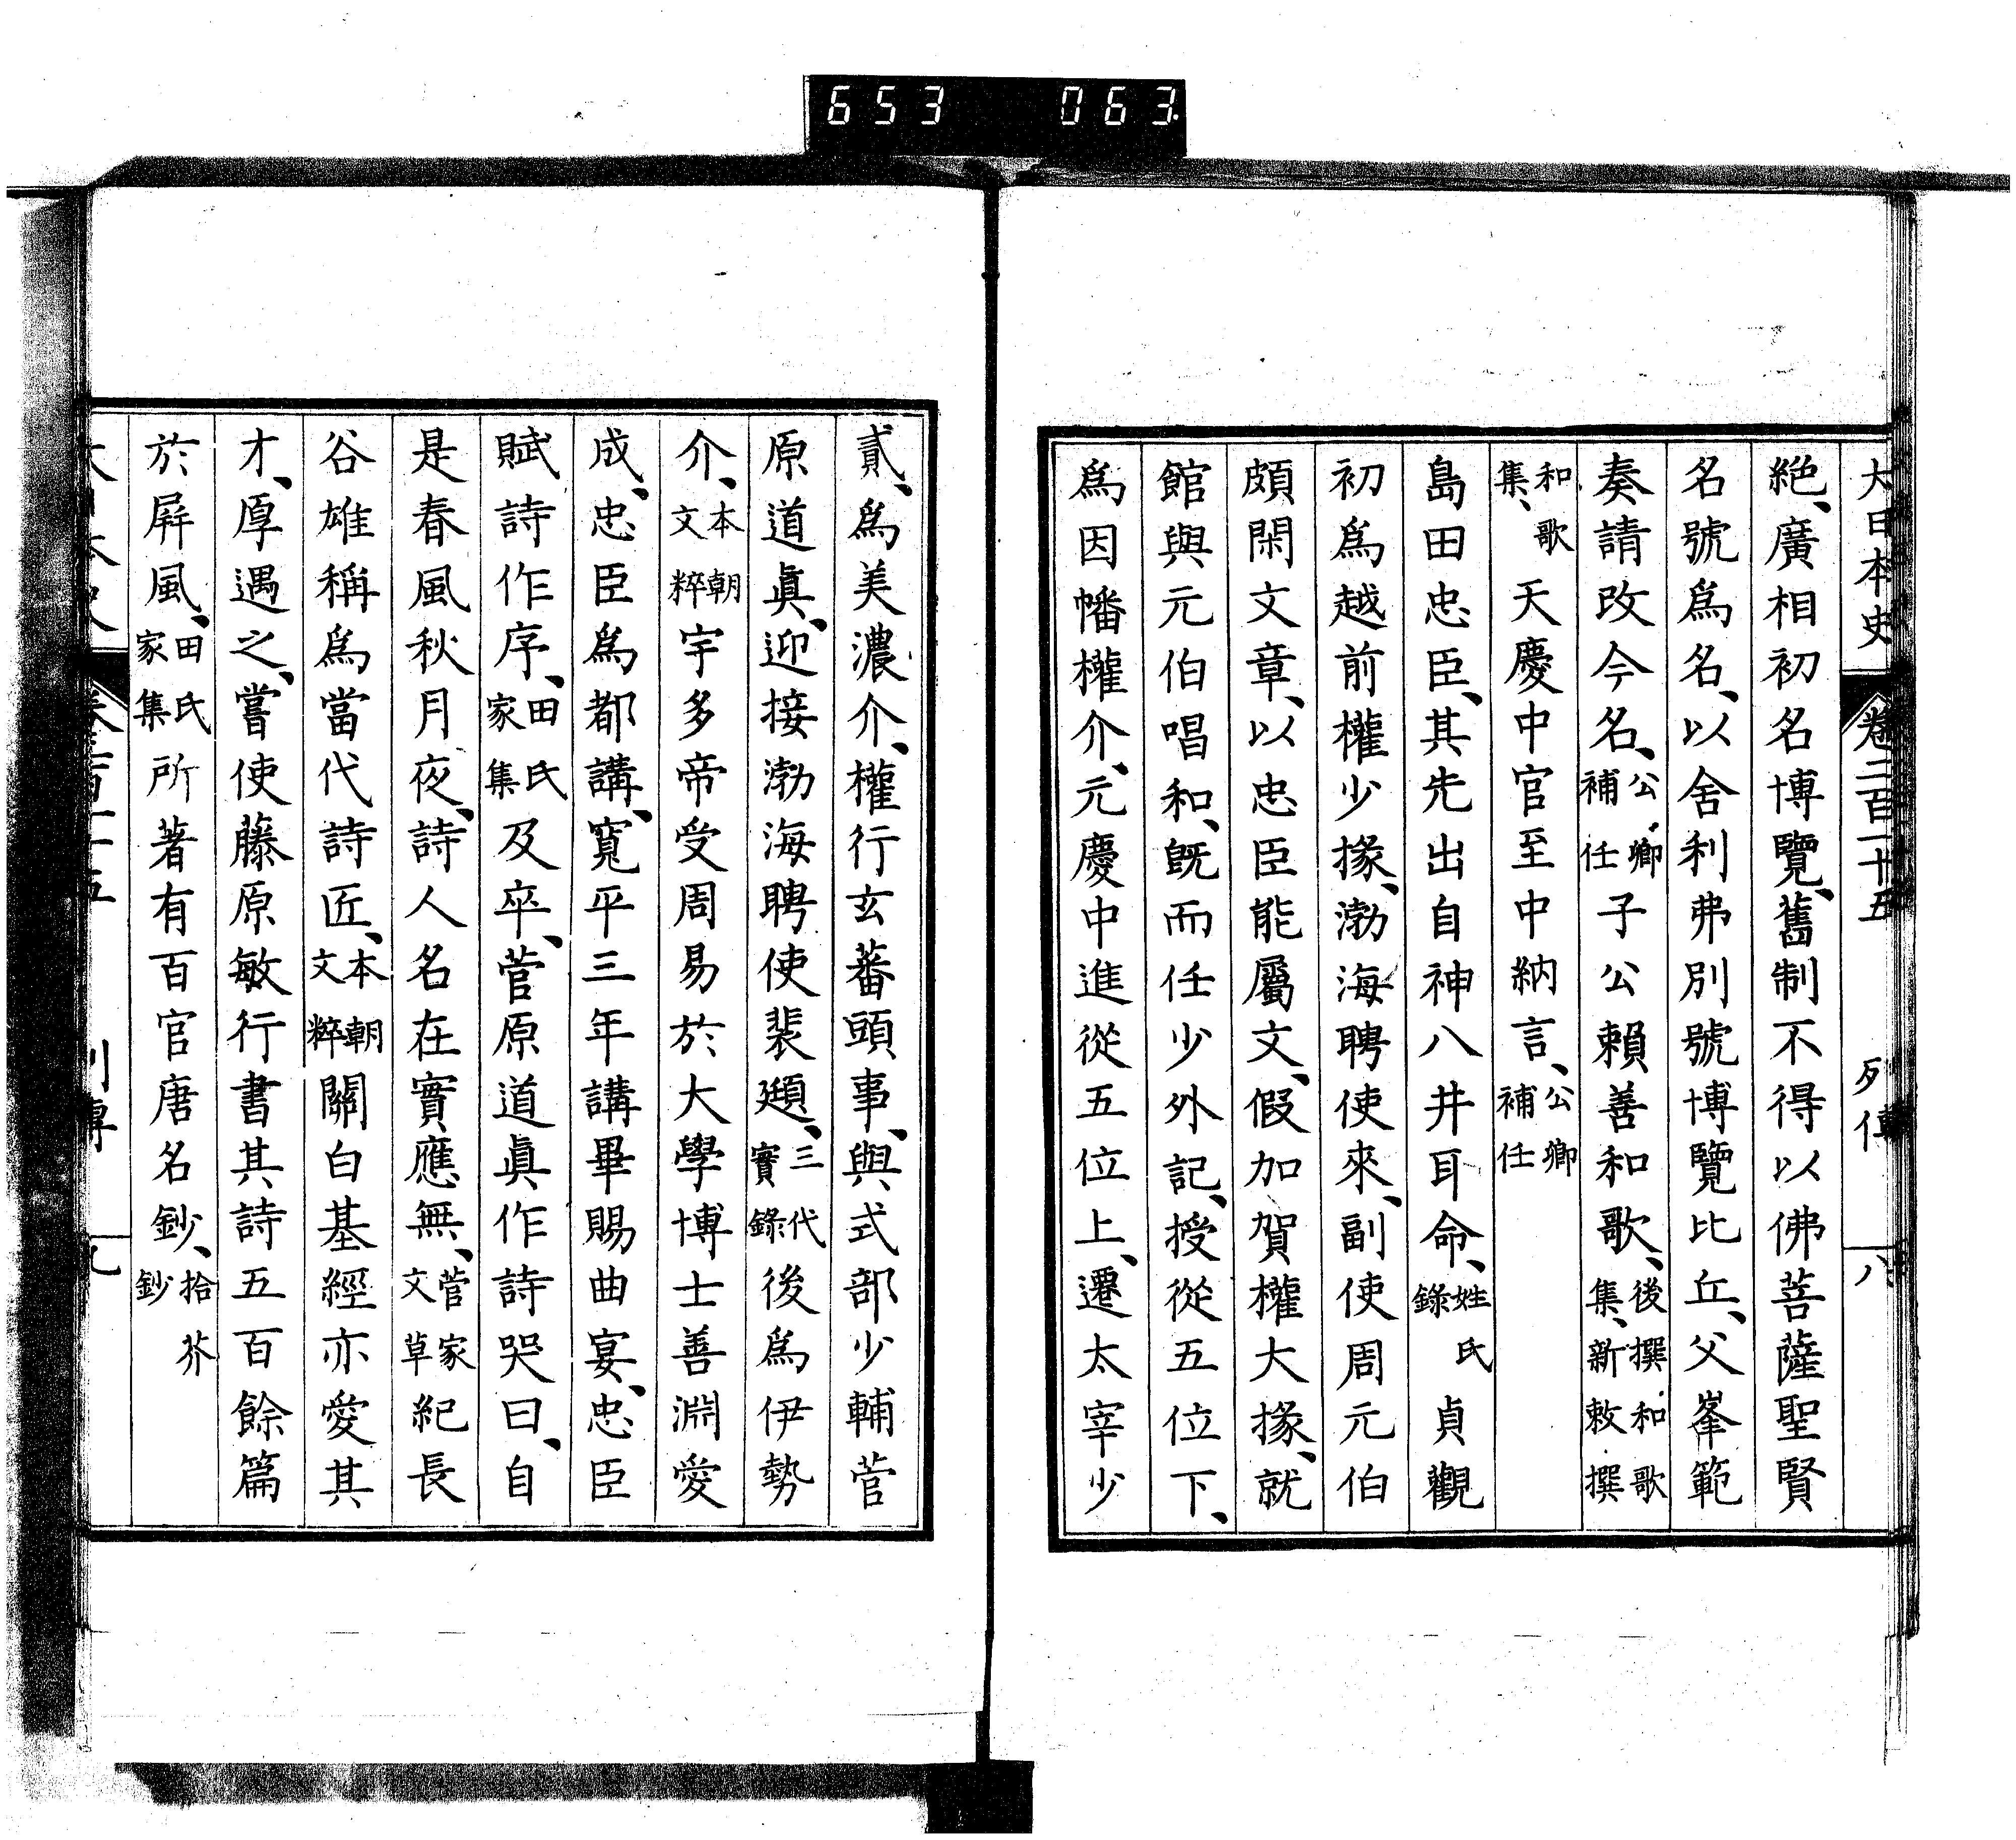 653 063
大日本史 卷二百十五 列傳 八
絶、廣相初名博覽、舊制不得以佛菩薩聖賢
名號爲名、以舍利弗別號博覽比丘、父峯範
奏請改今名、公卿補任子公賴善和歌、後撰和歌集、新敕撰
和歌集、天慶中官至中納言、公卿補任
島田忠臣、其先出自神八井耳命、姓氏錄貞觀
初爲越前權少掾、渤海聘使來、副使周元伯
頗閑文章、以忠臣能屬文、假加賀權大掾、就
館與元伯唱和、旣而任少外記、授從五位下、
爲因幡權介、元慶中進從五位上、遷太宰少
貳、爲美濃介、權行玄蕃頭事、與式部少輔菅
原道眞、迎接渤海聘使裴頲、三代實錄後爲伊勢
介、本朝文粹宇多帝受周易於大學博士善淵愛
成、忠臣爲都講、寬平三年講畢賜曲宴、忠臣
賦詩作序、田氏家集及卒、菅原道眞作詩哭曰、自
是春風秋月夜、詩人名在實應無、菅家文草紀長
谷雄稱爲當代詩匠、本朝文粹關白基經亦愛其
才、厚遇之、嘗使藤原敏行書其詩五百餘篇
於屛風、田氏家集所著有百官唐名鈔、拾芥鈔